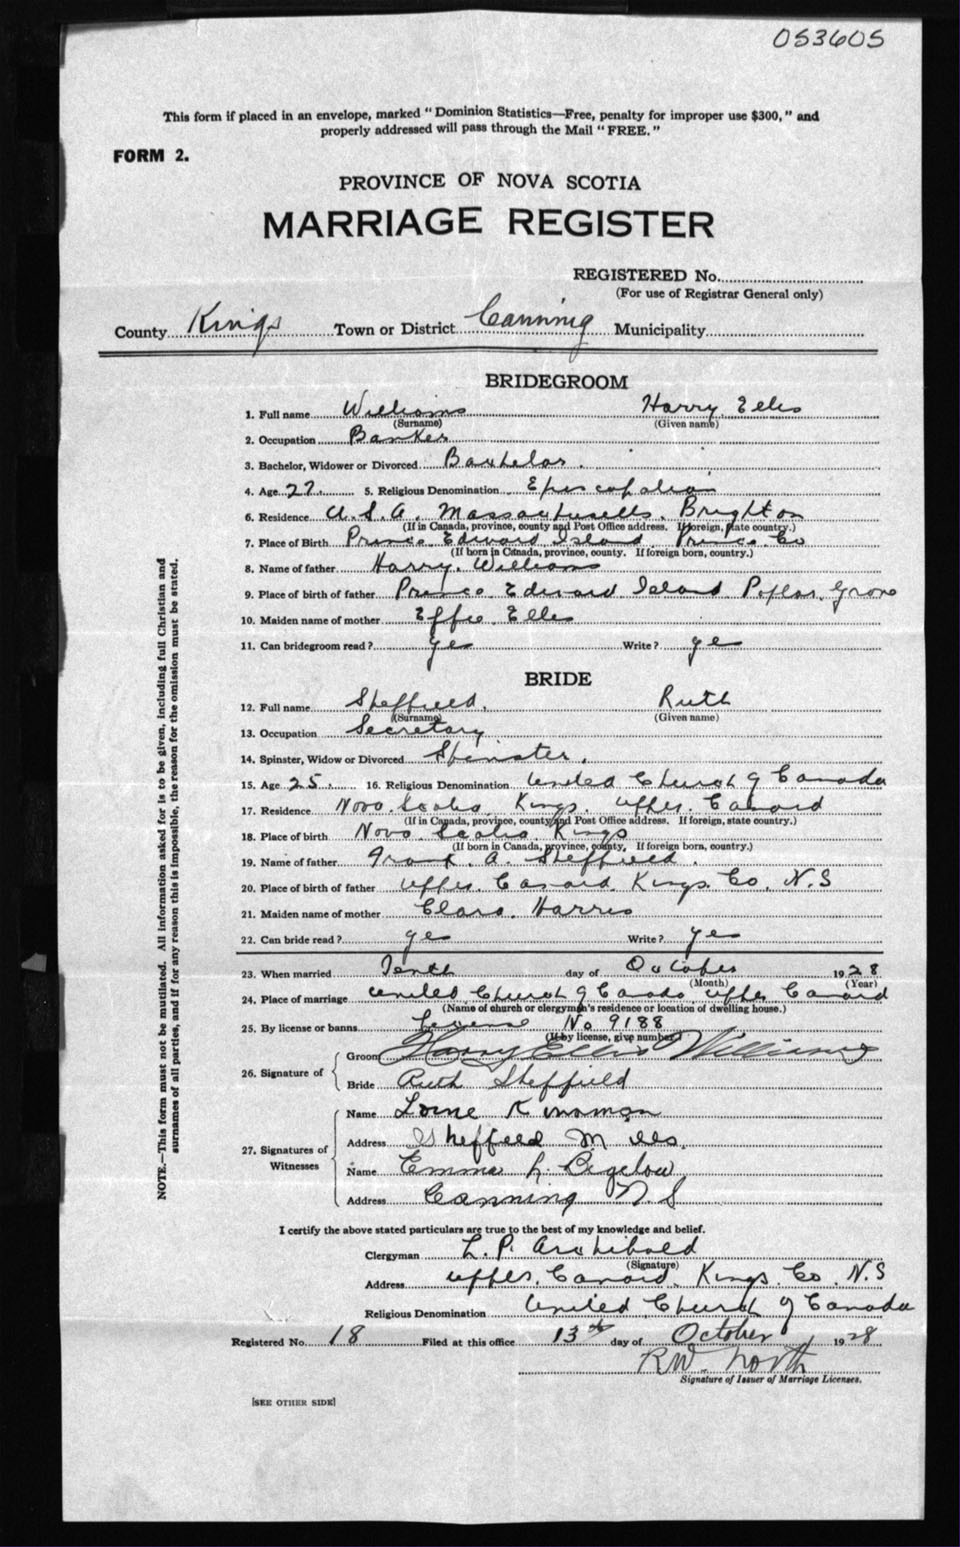 053605
This form if placed in an envelope, marked "Dominion Statistics—Free, penalty for improper use $300," and
properly addressed will pass through the Mail "FREE."
FORM 2.
PROVINCE OF NOVA SCOTIA
MARRIAGE REGISTER
REGISTERED No.
(For use of Registrar General only)
County Kings Town or District Canning Municipality
BRIDEGROOM
1. Full name Williams Harry Ellis
(Surname) (Given name)
2. Occupation Banker
3. Bachelor, Widower or Divorced Bachelor.
4. Age 27. 5. Religious Denomination Episcopalian
6. Residence U.S.A. Massachusetts. Brighton
(If in Canada, province, county and Post Office address. If foreign, state country.)
7. Place of Birth Prince Edward Island Prince Co
(If born in Canada, province, county. If foreign born, country.)
8. Name of father Harry. Williams
9. Place of birth of father Prince Edward Island Poplar Grove
10. Maiden name of mother Effie Ellis
11. Can bridegroom read? yes Write? yes
BRIDE
12. Full name Sheffield. Ruth
(Surname) (Given name)
13. Occupation Secretary
14. Spinster, Widow or Divorced Spinster.
15. Age 25. 16. Religious Denomination United Church of Canada
17. Residence Nova Scotia Kings. Upper Canard
(If in Canada, province, county and Post Office address. If foreign, state country.)
18. Place of birth Nova Scotia Kings
(If born in Canada, province, county, If foreign born, country.)
19. Name of father A. Sheffield.
20. Place of birth of father Upper Canard Kings. Co. N.S
21. Maiden name of mother Clara. Harris
22. Can bride read? yes Write? yes
23. When married Tenth day of October 1928
(Month) (Year)
24. Place of marriage United Church of Canada Upper Canard
(Name of church or clergyman's residence or location of dwelling house.)
25. By license or banns License No 9188
(If by license, give number)
26. Signature of
Groom Harry Ellis Williams
Bride Ruth Sheffield
27. Signatures of Witnesses
Name Lorne Kinsman
Address Sheffield Mills.
Name Emma L. Bigelow
Address Canning N S
I certify the above stated particulars are true to the best of my knowledge and belief.
Clergyman L. P. Archibald
(Signature)
Address Upper Canard Kings Co. N.S
Religious Denomination United Church of Canada
Registered No. 18 Filed at this office 13th day of October 1928
R.W. North
Signature of Issuer of Marriage Licenses.
[SEE OTHER SIDE]
NOTE.—This form must not be mutilated. All information asked for is to be given, including full Christian and
surnames of all parties, and if for any reason this is impossible, the reason for the omission must be stated.